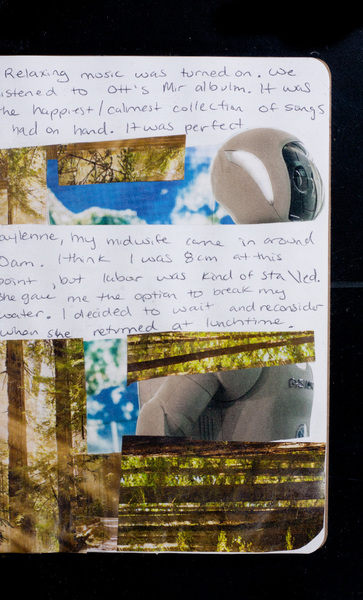 Relaxing music was turned on. We
listened to Ott's Mir albulm. It was
the happiest/calmest collection of songs
I had on hand. It was perfect
aylenne, my midwife came in around
0am. I think I was 8cm at this
point, but labor was kind of stalled.
she gave me the option to break my
water. I decided to wait and reconsider
when she returned at lunchtime.